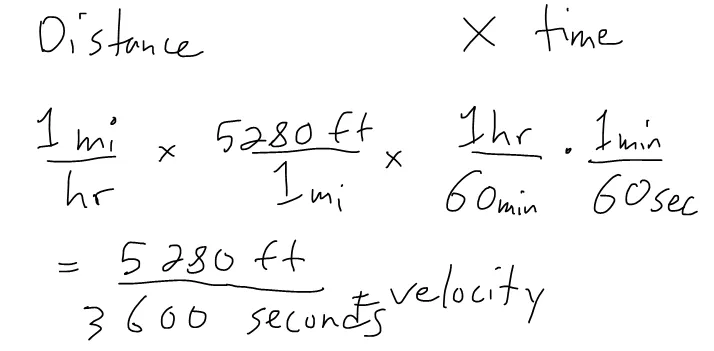 Distance × time
1 mi/hr × 5280 ft/1 mi × 1hr/60min · 1min/60sec
= 5280 ft/3600 seconds velocity